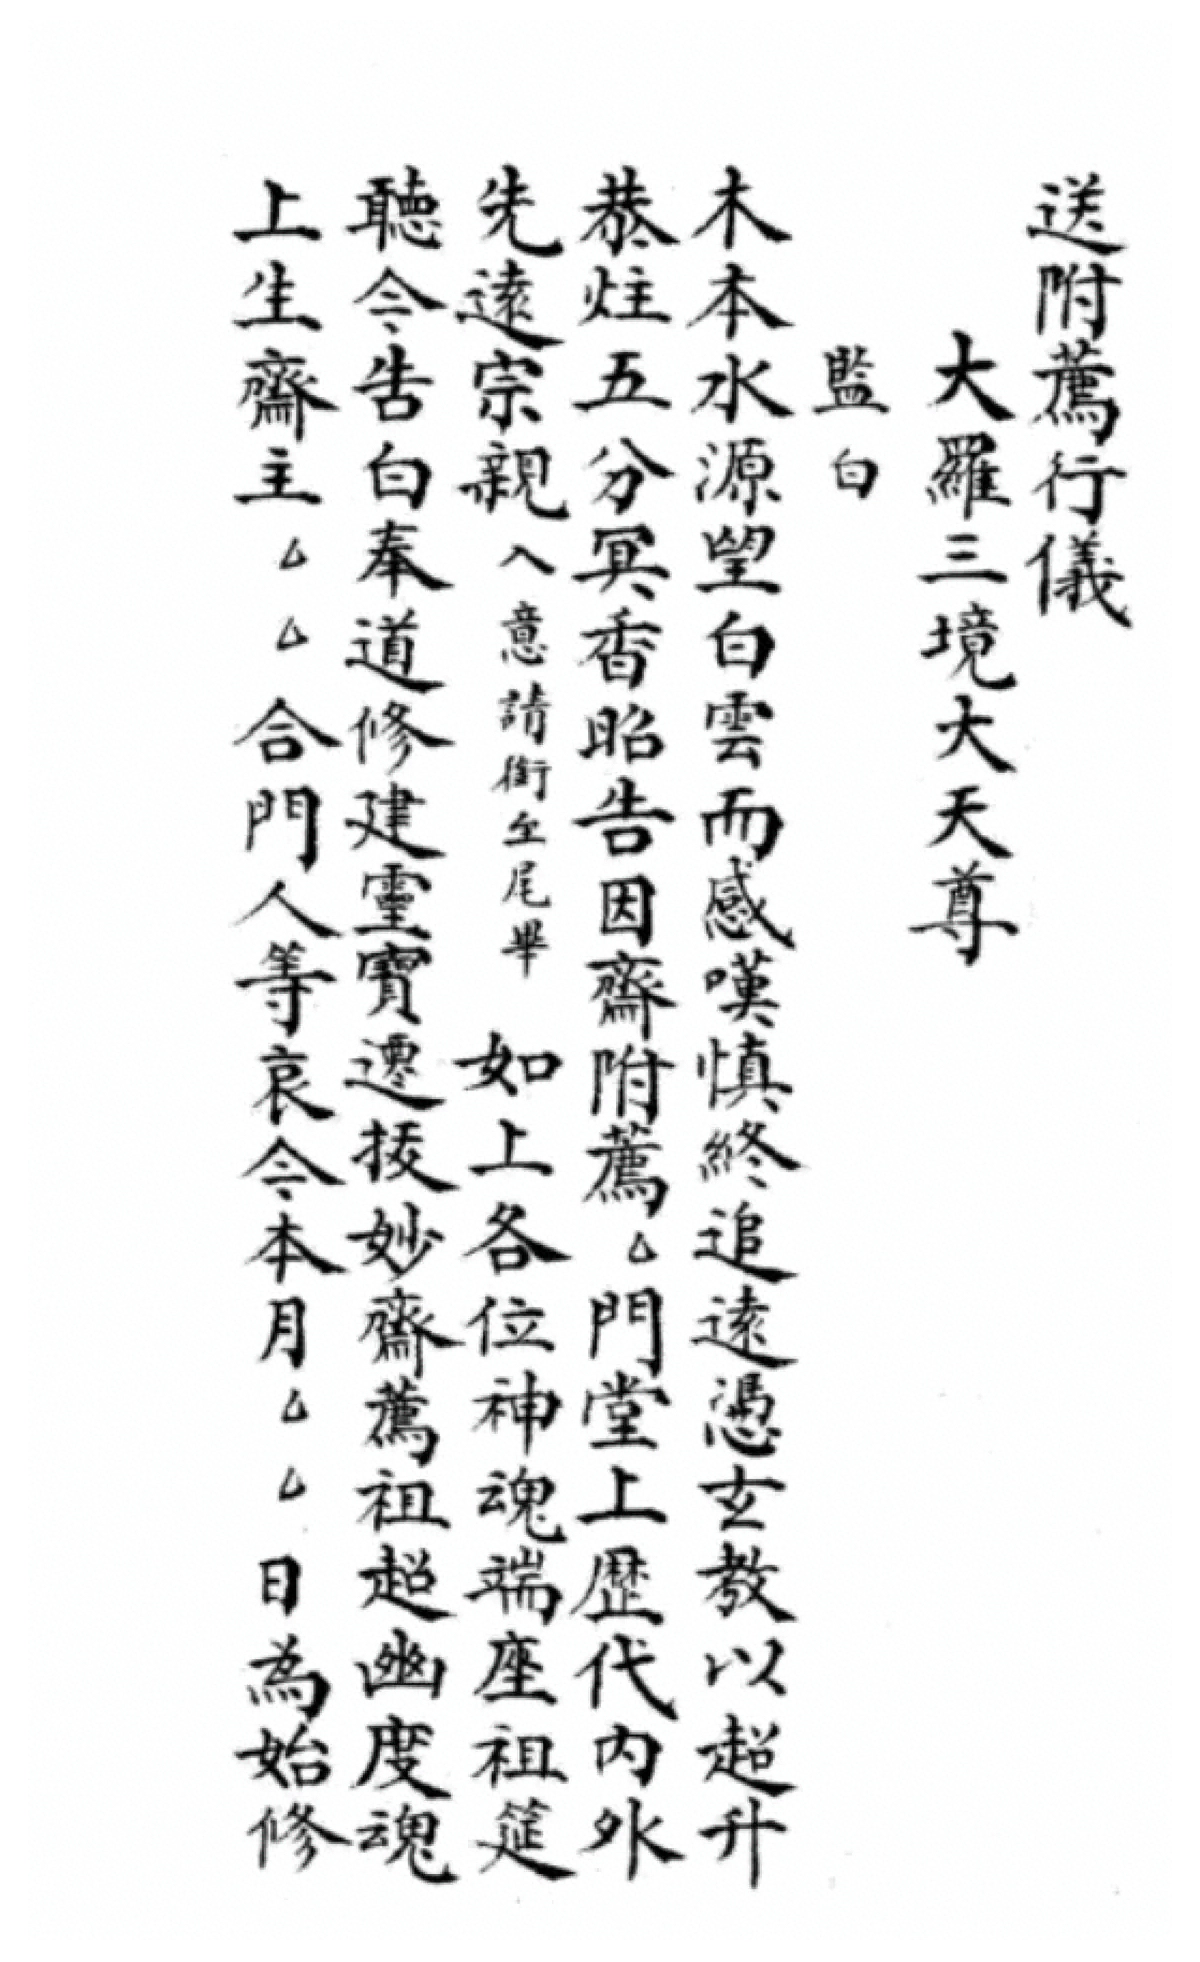 送附薦行儀
大羅三境大天尊
監白
木本水源望白雲而感嘆慎終追遠憑玄教以超升
恭炷五分冥香昭告因齋附薦厶門堂上歷代內外
先遠宗親入意請銜至尾畢 如上各位神魂端座祖筵
聽今告白奉道修建靈寶遷拔妙齋薦祖超幽度魂
上生齋主厶厶合門人等哀今本月厶厶日為始修